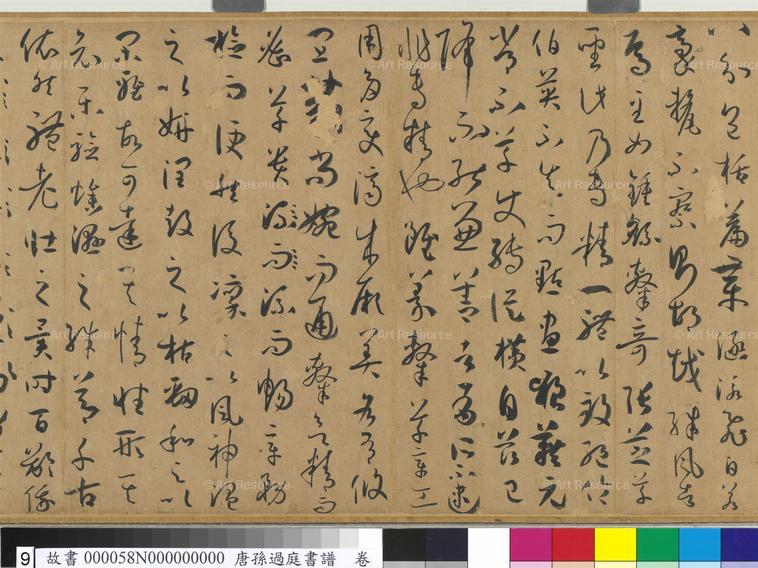 八分包括篇章涵泳飛白若
毫釐不察則胡越殊風者
焉至如鍾繇隸奇張芝草
聖此乃專精一體以致絕倫
伯英不真而點畫狼藉元
常不草使轉縱橫自茲已
降不能兼善者有所不逮
非專精也雖篆隸草章工
用多變濟成厥美各有攸
宜篆尚婉而通隸欲精而
密草貴流而流而暢章務
檢而便然後凜之以風神溫
之以妍潤鼓之以枯勁和之以
閑雅故可達其情性形其
哀樂驗燥濕之殊節千古
依然體老壯之異時百齡俄
9 故書 000058N000000000 唐孫過庭書譜 卷
© Art Resource